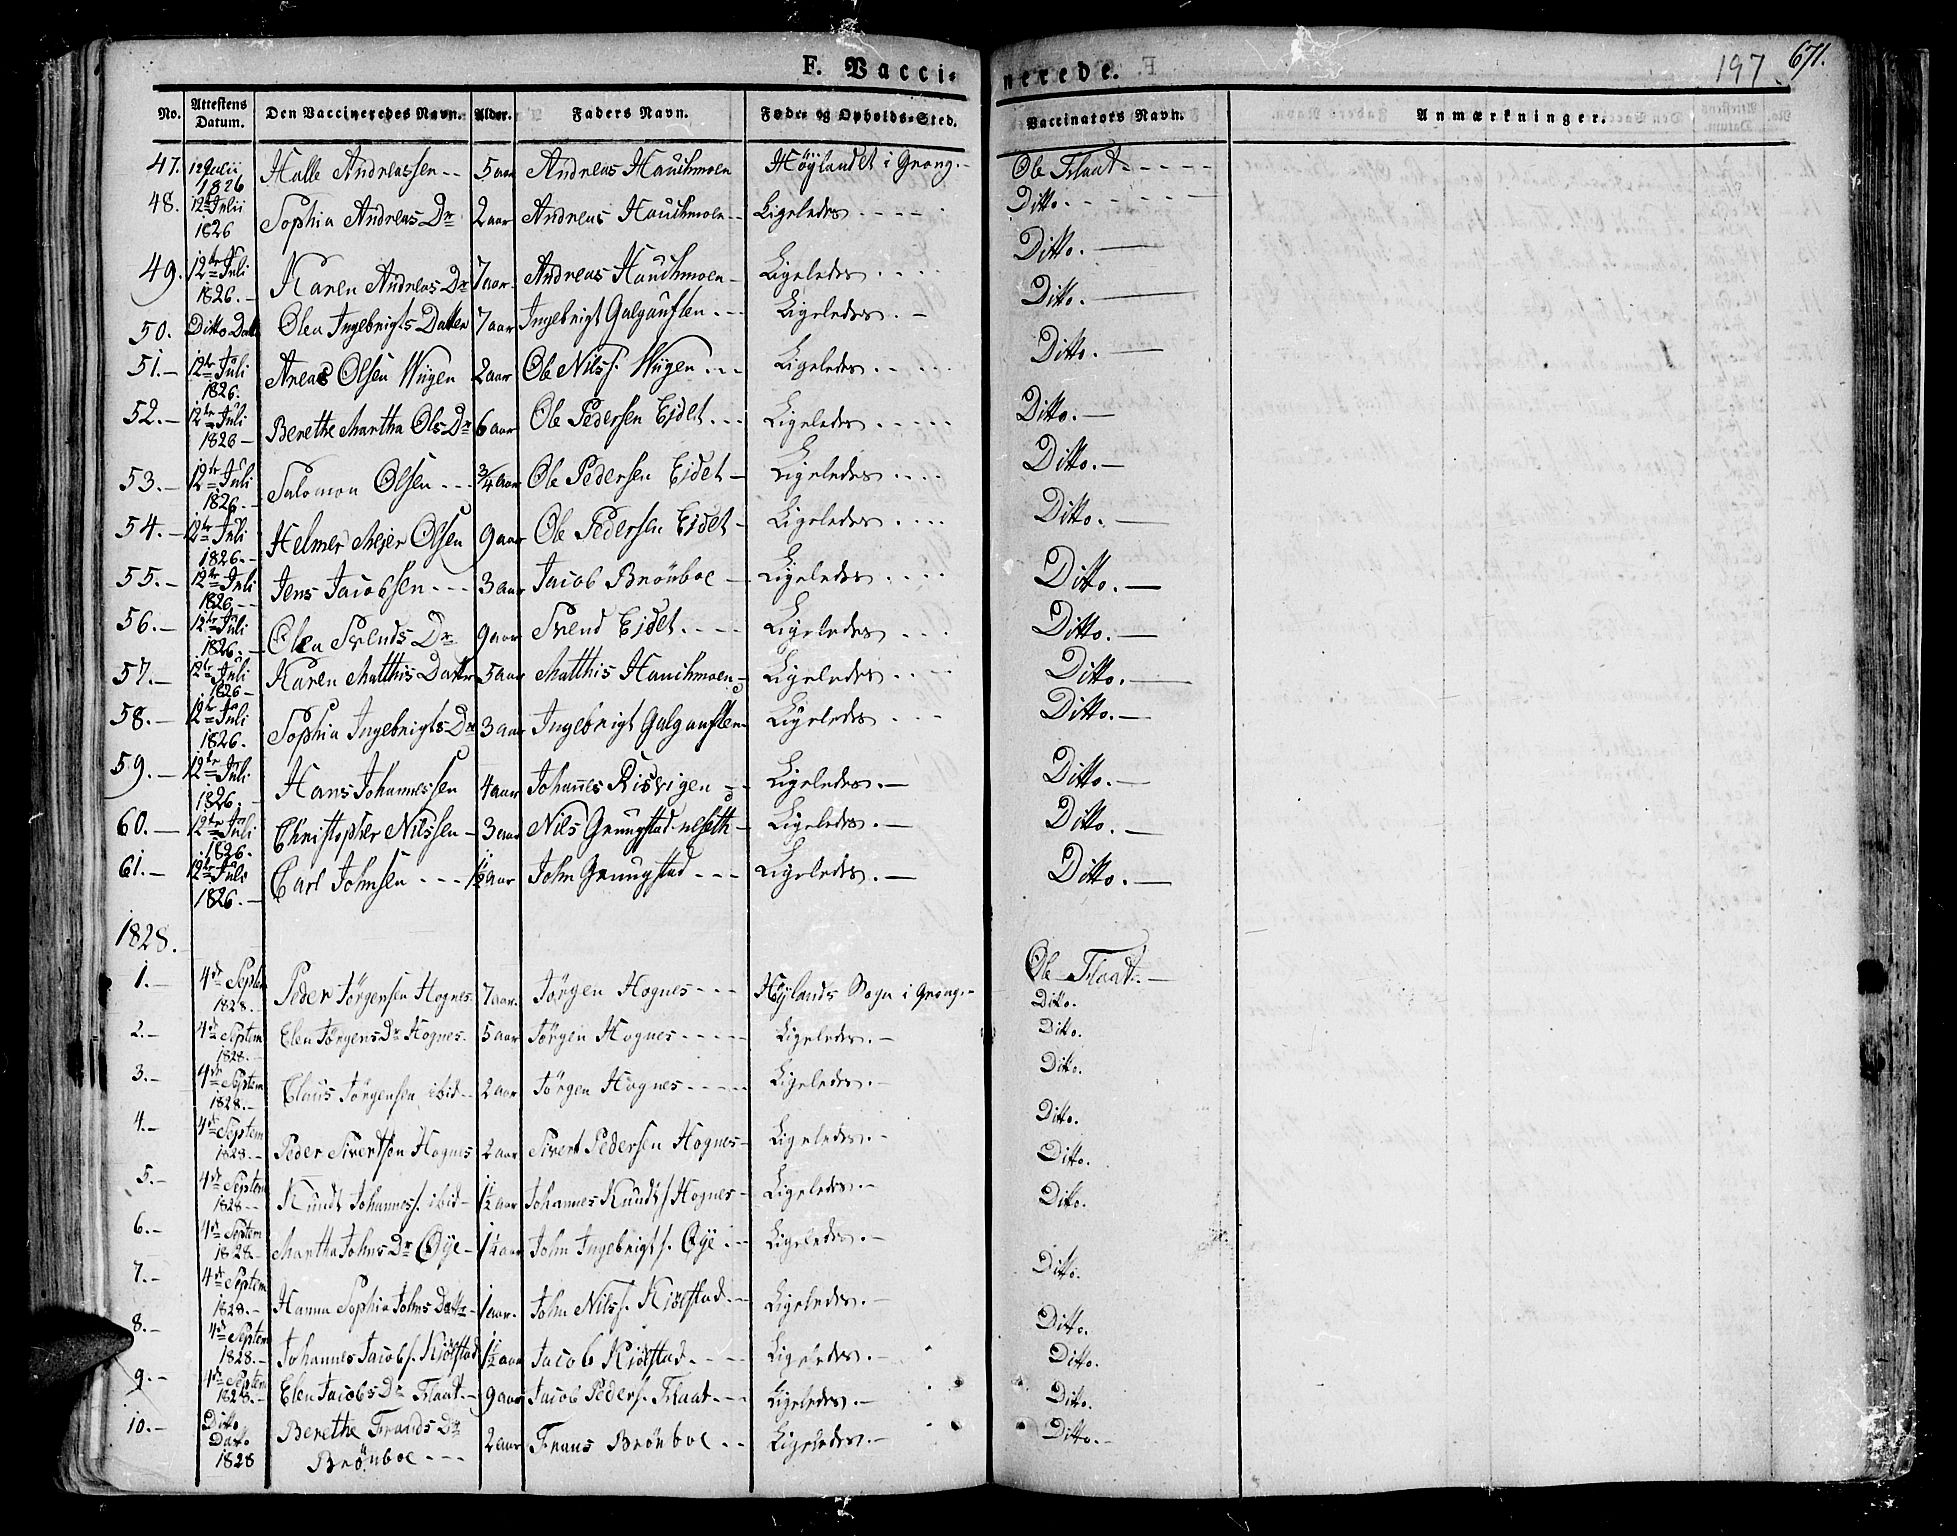 F. Vacci-
nerede.
197
671.
No. Attestens Datum. Den Vaccineredes Navn. Alder. Faders Navn. Føde- og Opholds-Sted. Vaccinators Navn. Anmærkninger.
47. 12 Julii 1826 Halle Andreassen -- 5 aar Andreas Hauchmoen Höylandet i Grong.- Ole Flaat - - - - -
48. 12te Julii 1826 Sophia Andreas Dr 2 aar Andreas Hauchmoen -- Ligeledes - - - - Ditto. - - - - - -
49. 12te Juli 1826. - Karen Andreas Dr 7 aar. Andreas Hauchmoen - Ligeledes . . . . Ditto. —
50. Ditto Datto Olea Ingebrigts Datter 7 aar Ingebrigt Galgauften . -- Ligeledes . - Ditto. —
51.- 12te Juli 1826. Areas Olsen Wiigen 2 aar Ole Nilss. Wiigen . . . Ligeledes . . . . . Ditto. —
52.- 12te Juli 1826 - Berethe Martha Ols Dr 6 aar Ole Pedersen Eidet . . . Ligeledes . . . . . Ditto. —
53.- 12te Juli 1826. - Salomon Olsen . . . 3/4 aar Ole Pedersen Eidet - Ligeledes . . . . Ditto. -
54.- 12te Juli 1826. - Helmer Mejer Olsen 9 aar Ole Pedersen Eidet - Ligeledes . . . . Ditto. —
55.- 12te Juli 1826. - Jens Jacobsen . . . 3 aar Jacob Brönboe - Ligeledes . . . . Ditto. —
56.- 12te Juli 1826. - Olea Svends Dr 9 aar Svend Eidet . . . . Ligeledes . . . Ditto. —
57.- 12te Juli 1826 - Karen Matthis Datter 5 aar Matthis Hauchmoen - Ligeledes . . . Ditto. —
58.- 12te Juli 1826. Sophia Ingebrigts Dr 3 aar Ingebrigt Galgauften Ligeledes . . . Ditto. -
59.- 12te Juli 1826. - Hans Johannessen 4 aar Johannes Risvigen -- Ligeledes . - Ditto. —
60.- 12te Juli 1826. Christopher Nilssen - 3 aar Nils Grungstadneseth - Ligeledes . - Ditto. —
61.- 12te Juli 1826. - Carl Johnsen . - - - 1½ aar John Grungstad - - - Ligeledes . - Ditto. —
1828.
1.- 4de Septem 1828. - Peder Jörgensen Hognes 7 aar. Jörgen Hognes - - - Höylands Sogn i Grong. - Ole Flaat. —
Ditto.
2.- 4de Septem 1828. - Elen Jörgens Dr Hognes. 5 aar Jörgen Hognes - - - - Ligeledes . - Ditto.
3.- 4de Septem 1828. - Claus Jörgensen ibid -- 2 aar Jörgen Hognes - - - - Ligeledes . - Ditto.
4.- 4de Septem 1828. - Peder Sivertsen Hognes 2 aar Sivert Pedersen Hognes - Ligeledes . - Ditto.
5.- 4de Septem 1828 - Knudt Johanness. ibid - 1½ aar Johannes Knudts. Hognes - Ligeledes . - Ditto.
6.- 4de Septem 1828. Martha Johns Dr Öye - 1¼ aar John Ingebrigts. Öye . - - Ligeledes . - Ditto.
7.- 4de Septem 1828. - Hanna Sophia Johns Datter - 1 aar. John Nilss. Kjölstad . - Ligeledes . - Ditto.
8.- 4de Septem 1828. - Johannes Jacobs. Kjölstad 1½ aar Jacob Kjölstad . - - - Ligeledes . - Ditto.
Ditto.
9.- 4de Septem 1828. - Elen Jacobs Dr Flaat - 9 aar Jacob Peders. Flaat - - - Ligeledes . - Ditto.
10.- Ditto Datto 1828 Berethe Frands Dr Brönboe - - - 2 aar Frans Brönboe . . Ligeledes . - Ditto. -